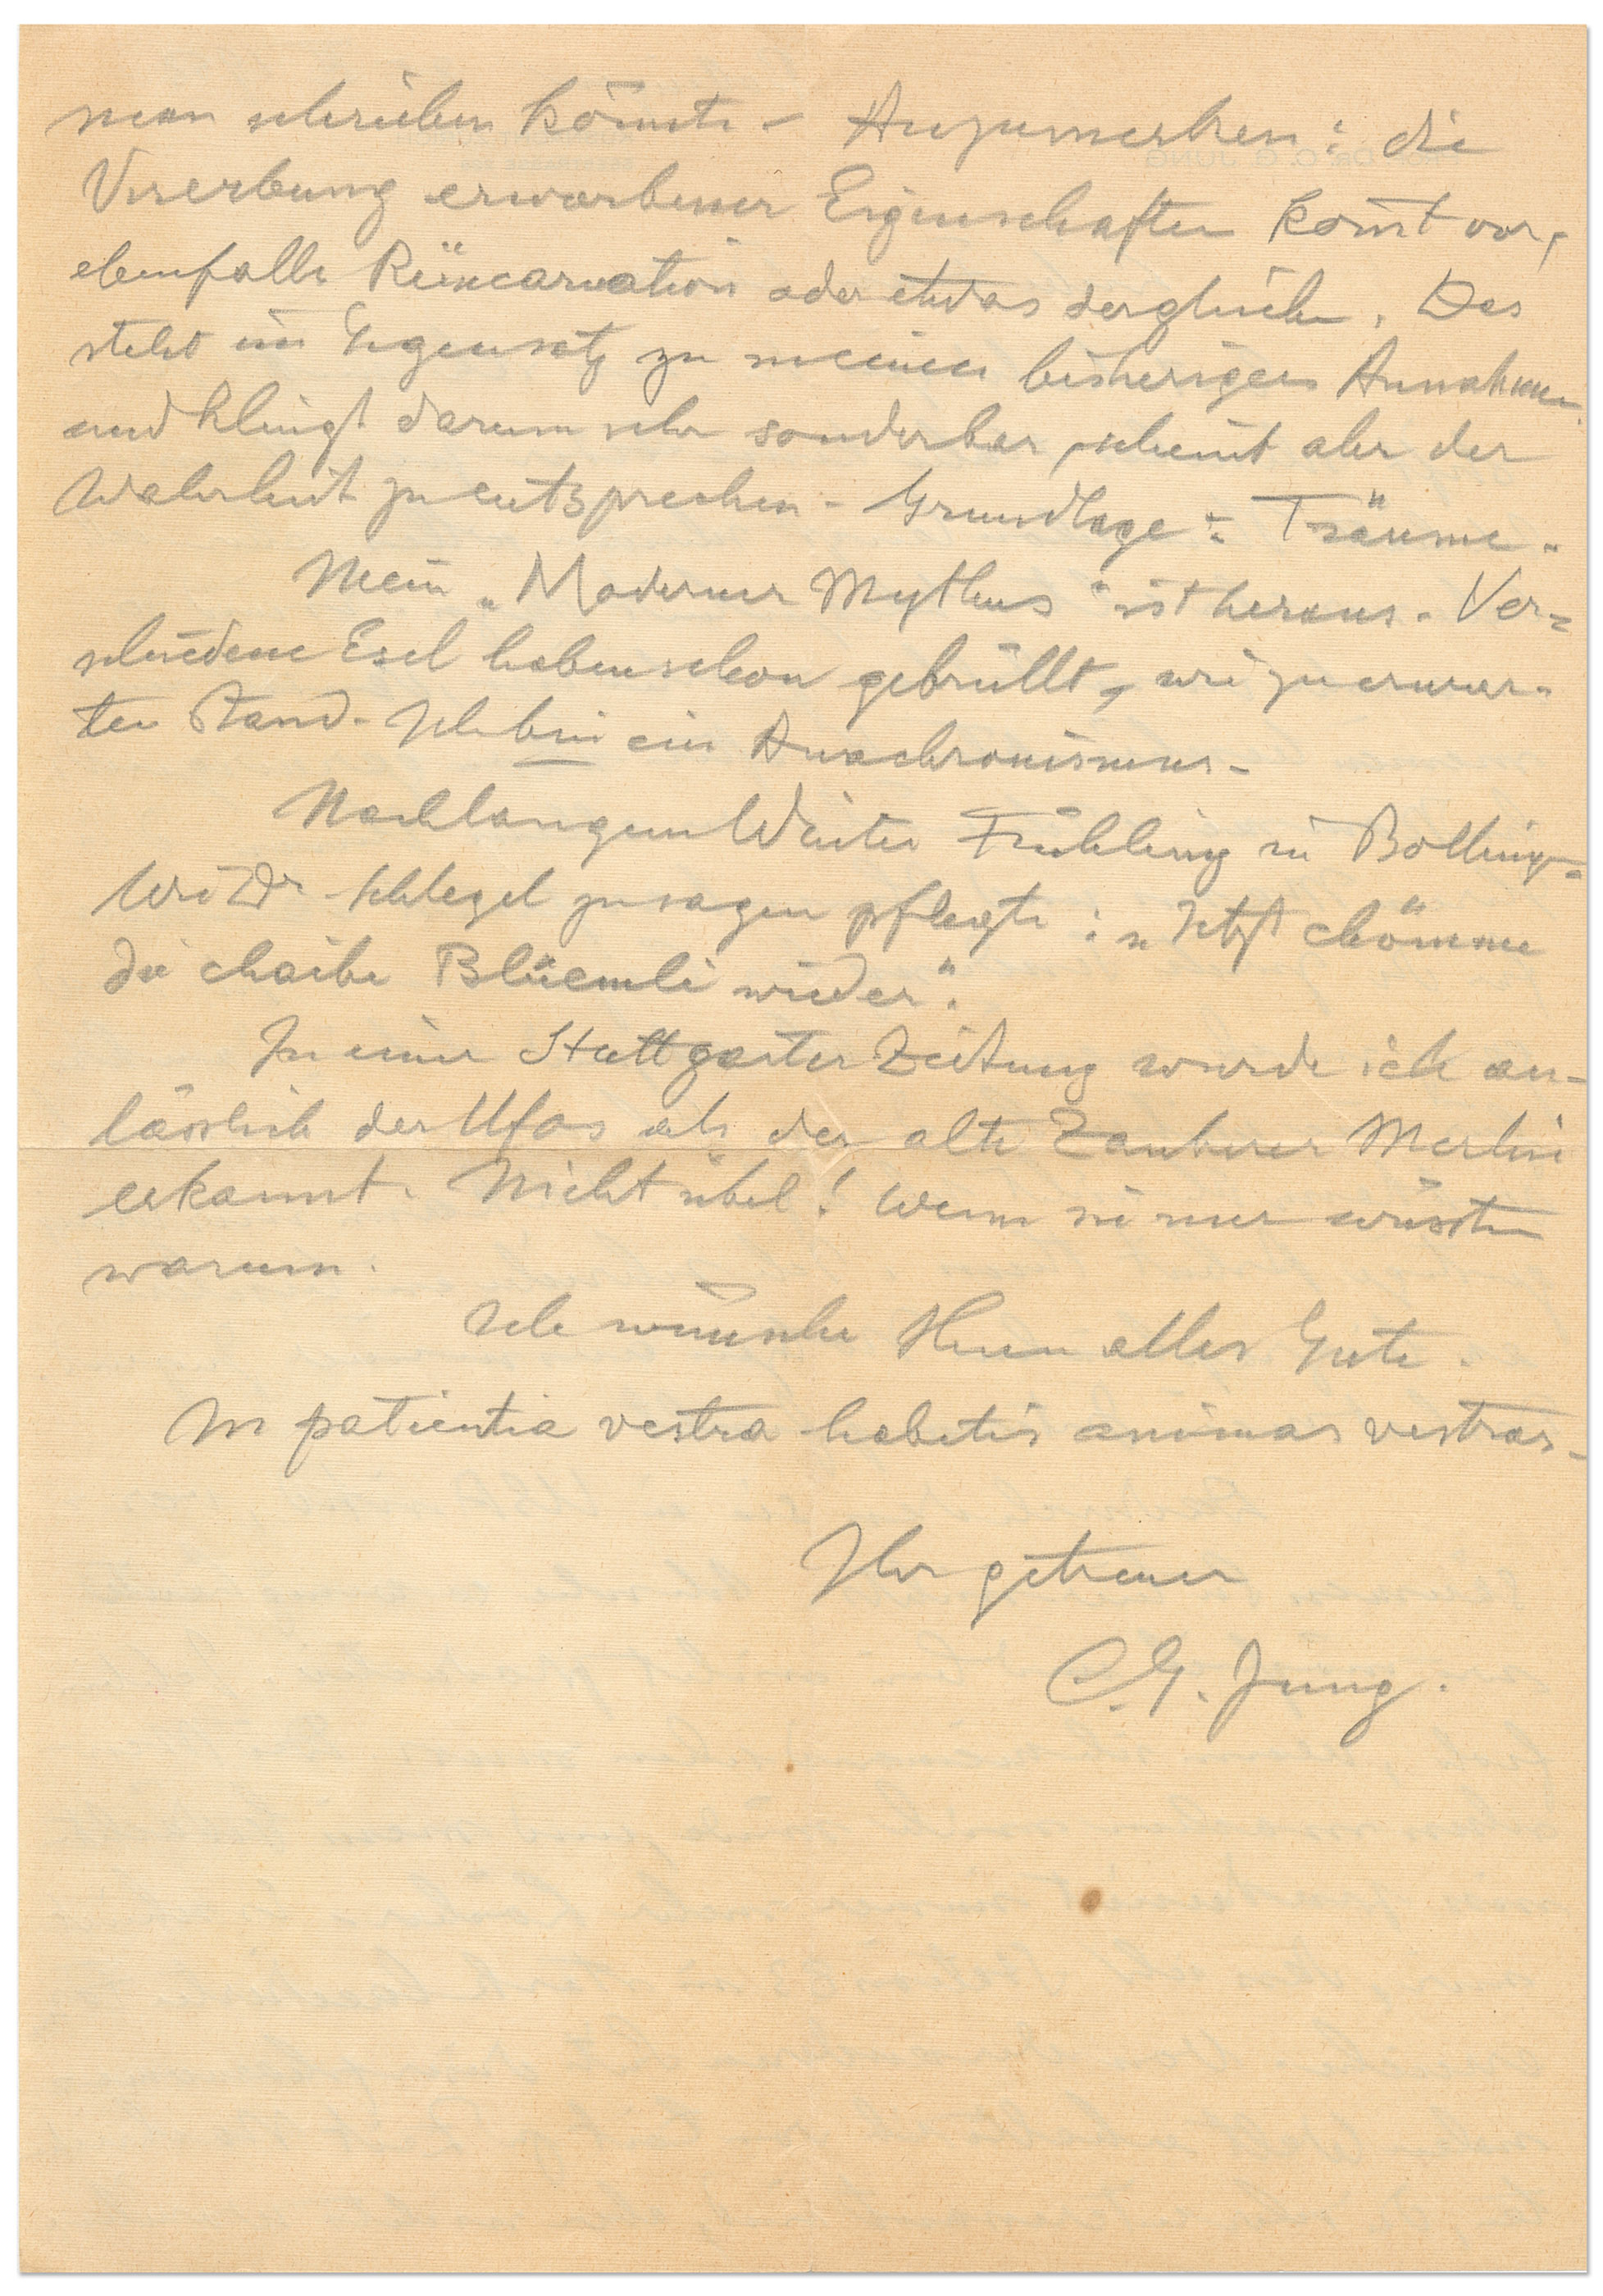 man schreiben könnte – Anzumerken: die
Vererbung erworbener Eigenschaften kom̄t vor,
ebenfalls Reïncarnation oder etwas dergleichen. Das
steht im Gegensatz zu meinen bisherigen Annahmen
und klingt darum sehr sonderbar, scheint aber der
Wahrheit zu entsprechen – Grundlage: Träume.
Mein „Moderner Mythus" ist heraus. Ver=
schiedene Esel haben schon gebrüllt, wie zu erwar-
ten stand. Ich bin ein Anachronismus.
Nach langem Winter Frühling in Bolling=
Wie Dr Schlegel zu sagen pflegte: „Jetzt chömme
die chaibe Blüemli wieder".
In einer Stuttgarter Zeitung wurde ich an-
lässlich der Ufos als der alte Zauberer Merlin
erkannt. Nicht übel! Wenn sie nur wüssten
warum.
Ich wünsche Ihnen alles Gute.
In patientia vestra habetis animas vestras.
Ihr getreuer
C. G. Jung.